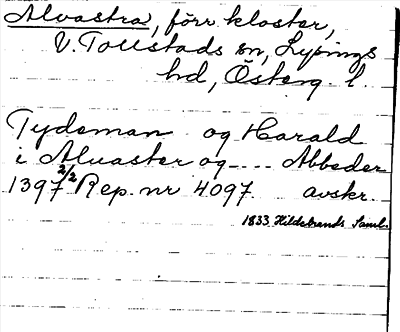 Alvastra, förr kloster,
V. Tollstads sn, Lysings
hd, Österg. l.
Tydeman og Harald
i Alvaster og --- Abbeder
1397 2/2 Rep. nr 4097. avskr.
1833 Hildebrands Saml.